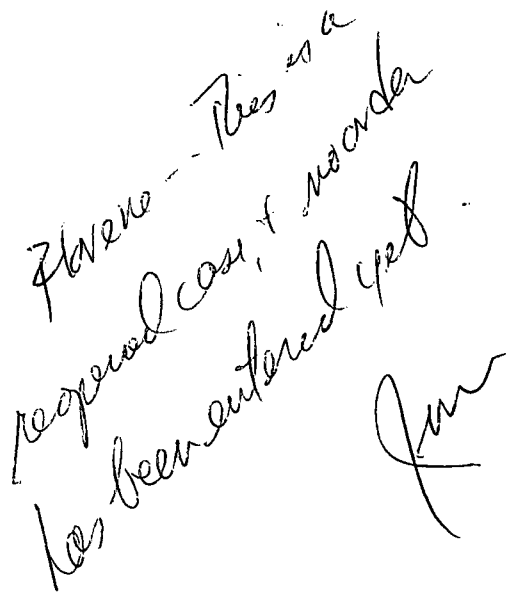 Florene -- This is a
reopened case, & no order
has been entered yet.